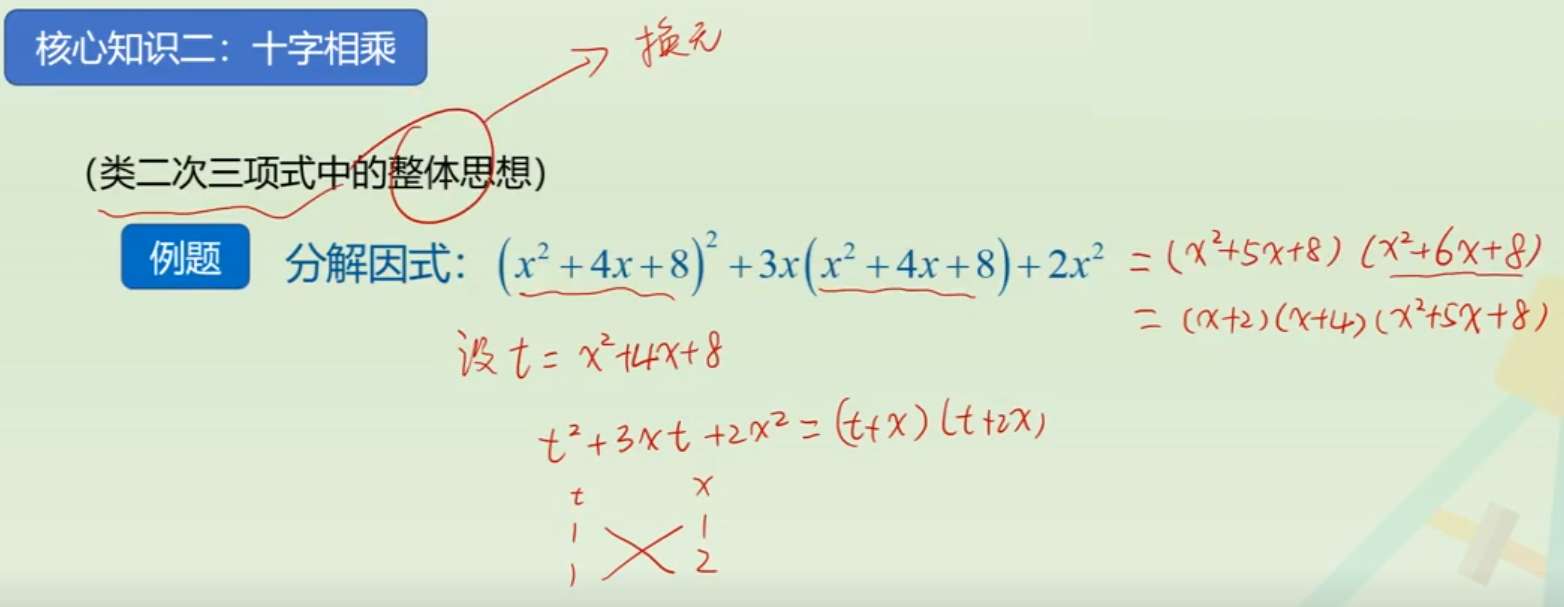 核心知识二：十字相乘
换元
(类二次三项式中的整体思想)
例题 分解因式：(x²+4x+8)²+3x(x²+4x+8)+2x² = (x²+5x+8)(x²+6x+8)
= (x+2)(x+4)(x²+5x+8)
设 t = x²+4x+8
t²+3xt+2x² = (t+x)(t+2x)
t x
1 1
1 2